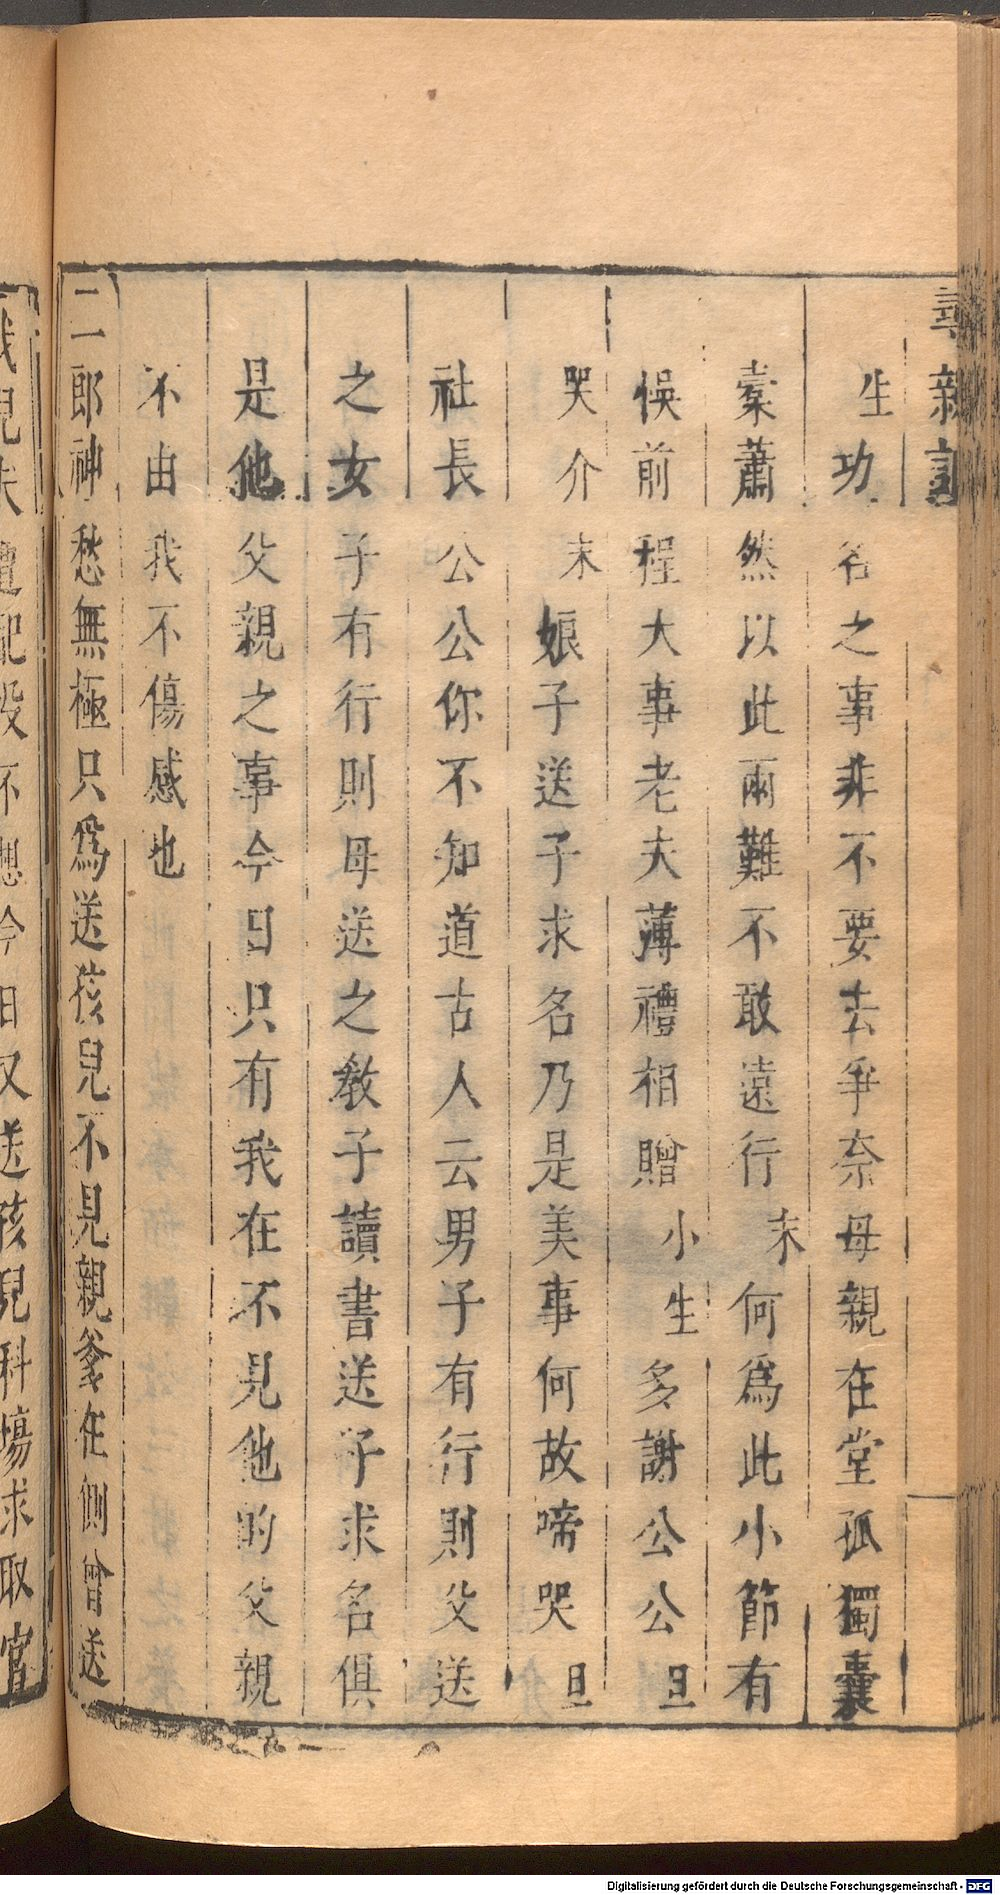 尋親記
生功名之事非不要去爭奈母親在堂孤獨囊
橐蕭然以此兩難不敢遠行末何爲此小節有
悞前程大事老夫薄禮相贈小生多謝公公旦
哭介末娘子送子求名乃是美事何故啼哭旦
社長公公你不知道古人云男子有行則父送
之女子有行則母送之教子讀書送子求名俱
是他父親之事今日只有我在不見他的父親
不由我不傷感也
二郎神愁無極只爲送孩兒不見親爹在側曾送
我兒夫遭配役不想今日又送孩兒科塲求取官
Digitalisierung gefördert durch die Deutsche Forschungsgemeinschaft - DFG